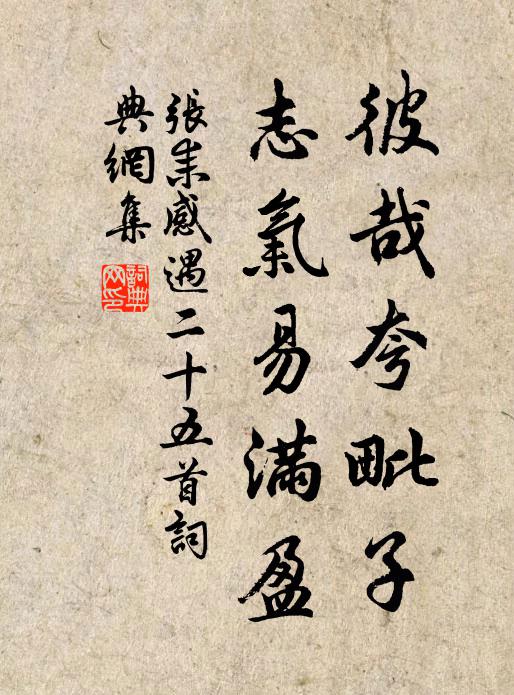 彼哉夸毗子
志氣易滿盈
張耒感遇二十五首詞
典網集
詞典
网印